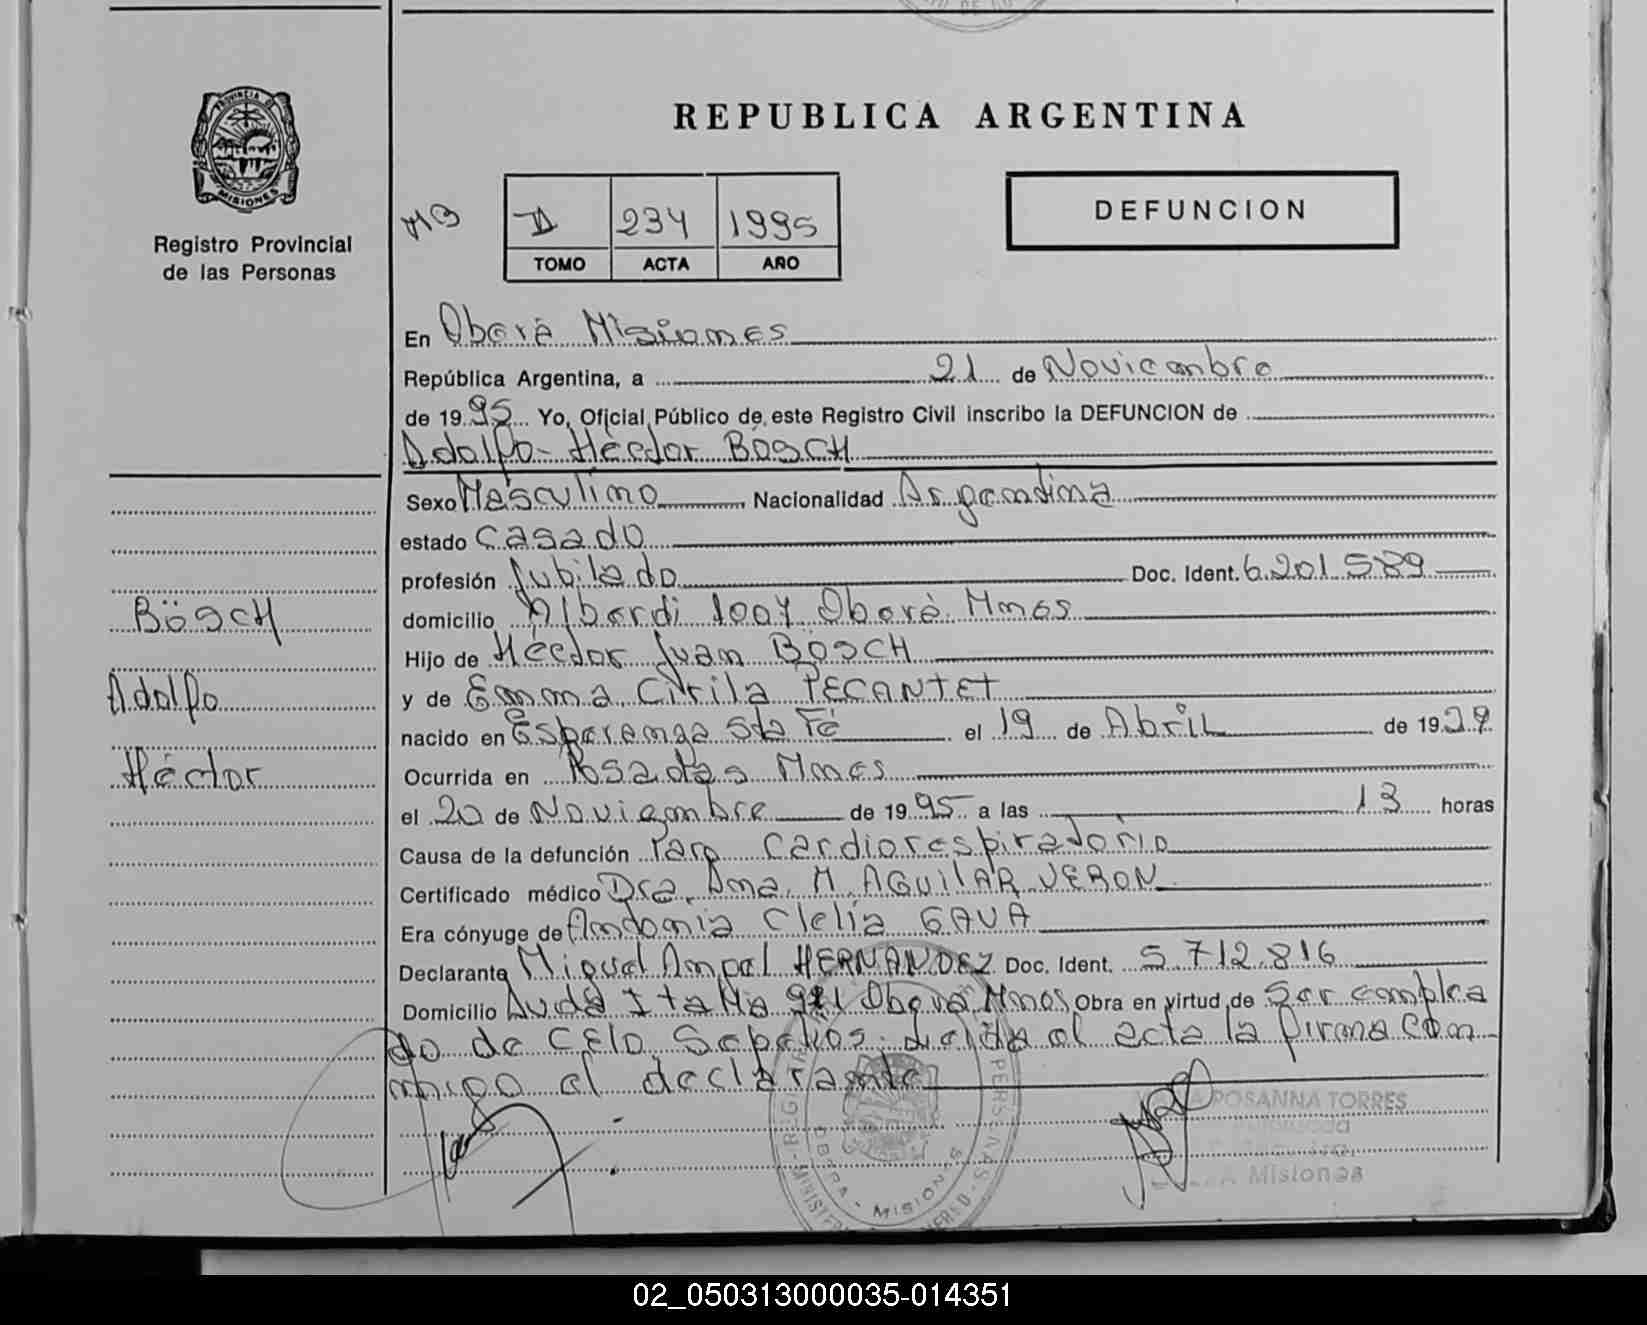 REPUBLICA ARGENTINA
PROVINCIA DE
MISIONES
Registro Provincial
de las Personas
DEFUNCION
II 234 1995
TOMO ACTA AÑO
En Oberá Misiones
República Argentina, a 21 de Noviembre
de 1995 Yo, Oficial Público de este Registro Civil inscribo la DEFUNCION de
Adolfo Héctor BÖSCH
Sexo Masculino Nacionalidad Argentina
estado Casado
profesión Jubilado Doc. Ident. 6.201.589
domicilio Alberdi 1007 Oberá Mnes
Hijo de Héctor Juan BÖSCH
y de Emma Cirila PECANTET
nacido en Esperanza Sta Fé el 19 de Abril de 1927
Ocurrida en Posadas Mnes
el 20 de Noviembre de 1995 a las 13 horas
Causa de la defunción Paro Cardiorespiratorio
Certificado médico Dra. Ana M. AGUILAR VERON
Era cónyuge de Antonia Clelia GAVA
Declarante Miguel Angel HERNANDEZ Doc. Ident. 5.712.816
Domicilio Avda Italia Oberá Mnes Obra en virtud de Ser emplea
do de CELO Sepelios. Leída el acta la firma con
migo el declarante
BÖSCH
Adolfo
Héctor
OBERA - MISIONES
ROSANNA TORRES
Misiones
02_050313000035-014351